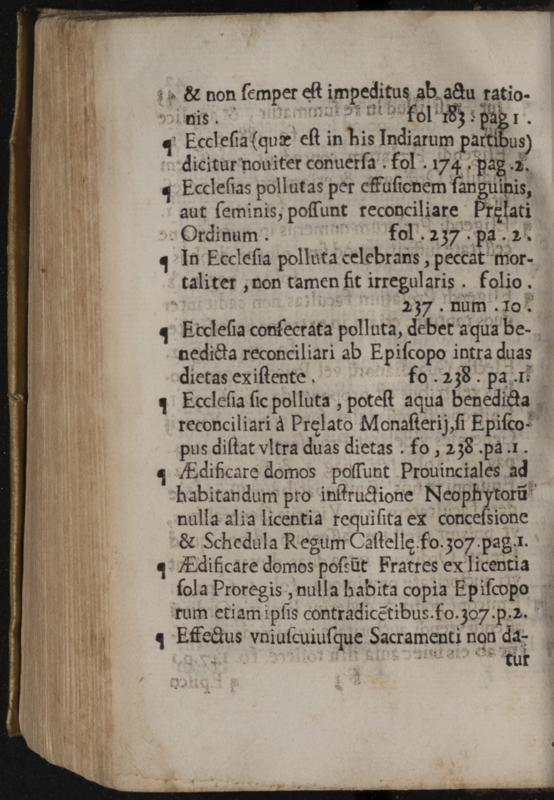 & non ſemper eſt impeditus ab actu ratio-
nis . fol 183 : pag 1 .
¶ Eccleſia (quæ eſt in his Indiarum partibus)
dicitur nouiter conuerſa . fol . 174 . pag .2.
¶ Eccleſias pollutas per effuſionem ſanguinis,
aut ſeminis, poſſunt reconciliare Pręlati
Ordinum . fol . 237 . pa . 2 .
¶ In Eccleſia polluta celebrans , peccat mor-
taliter , non tamen fit irregularis . folio .
237 . num . 10 .
¶ Eccleſia conſecrata polluta, debet aqua be-
nedicta reconciliari ab Epiſcopo intra duas
dietas exiſtente . fo . 238 . pa .1.
¶ Eccleſia ſic polluta , poteſt aqua benedicta
reconciliari à Pręlato Monaſterij,ſi Epiſco-
pus diſtat vltra duas dietas . fo , 238 .pa .1 .
¶ Ædificare domos poſſunt Prouinciales ad
habitandum pro inſtructione Neophytorū
nulla alia licentia requiſita ex conceſsione
& Schedula Regum Caſtellę.fo.307.pag.1.
¶ Ædificare domos poſsūt Fratres ex licentia
ſola Proregis , nulla habita copia Epiſcopo
rum etiam ipſis contradicētibus.fo.307.p.2.
¶ Effectus vniuſcuiuſque Sacramenti non da-
tur